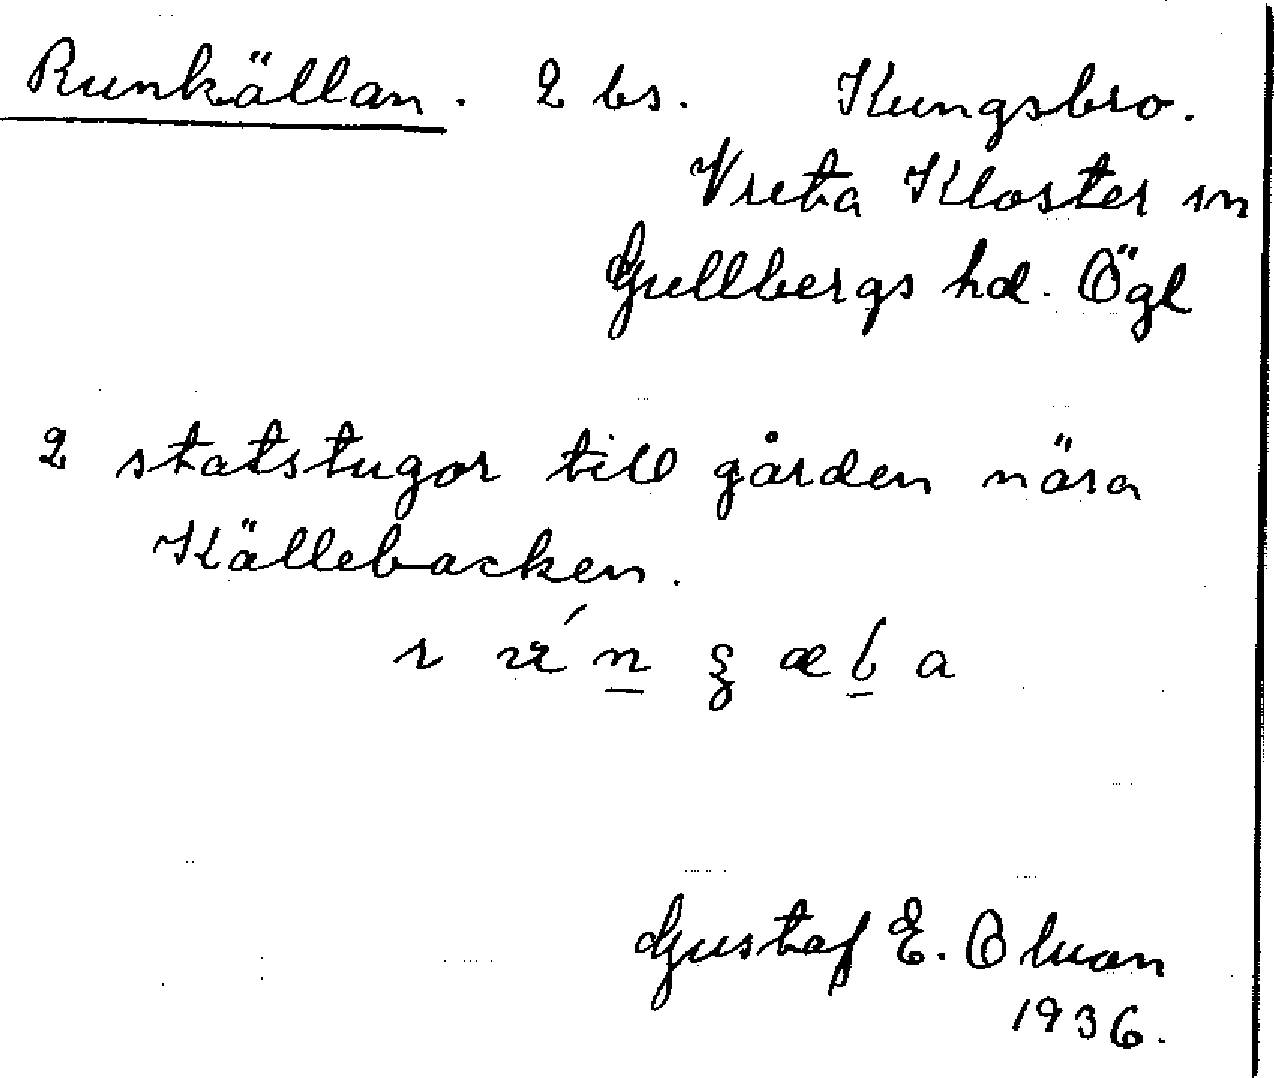 Runkällan. 2 bs. Kungsbro.
Vreta Kloster sn
Gullbergs hd. Ögl
2 statstugor till gården nära
Källebacken.
Gustaf E.
1936.